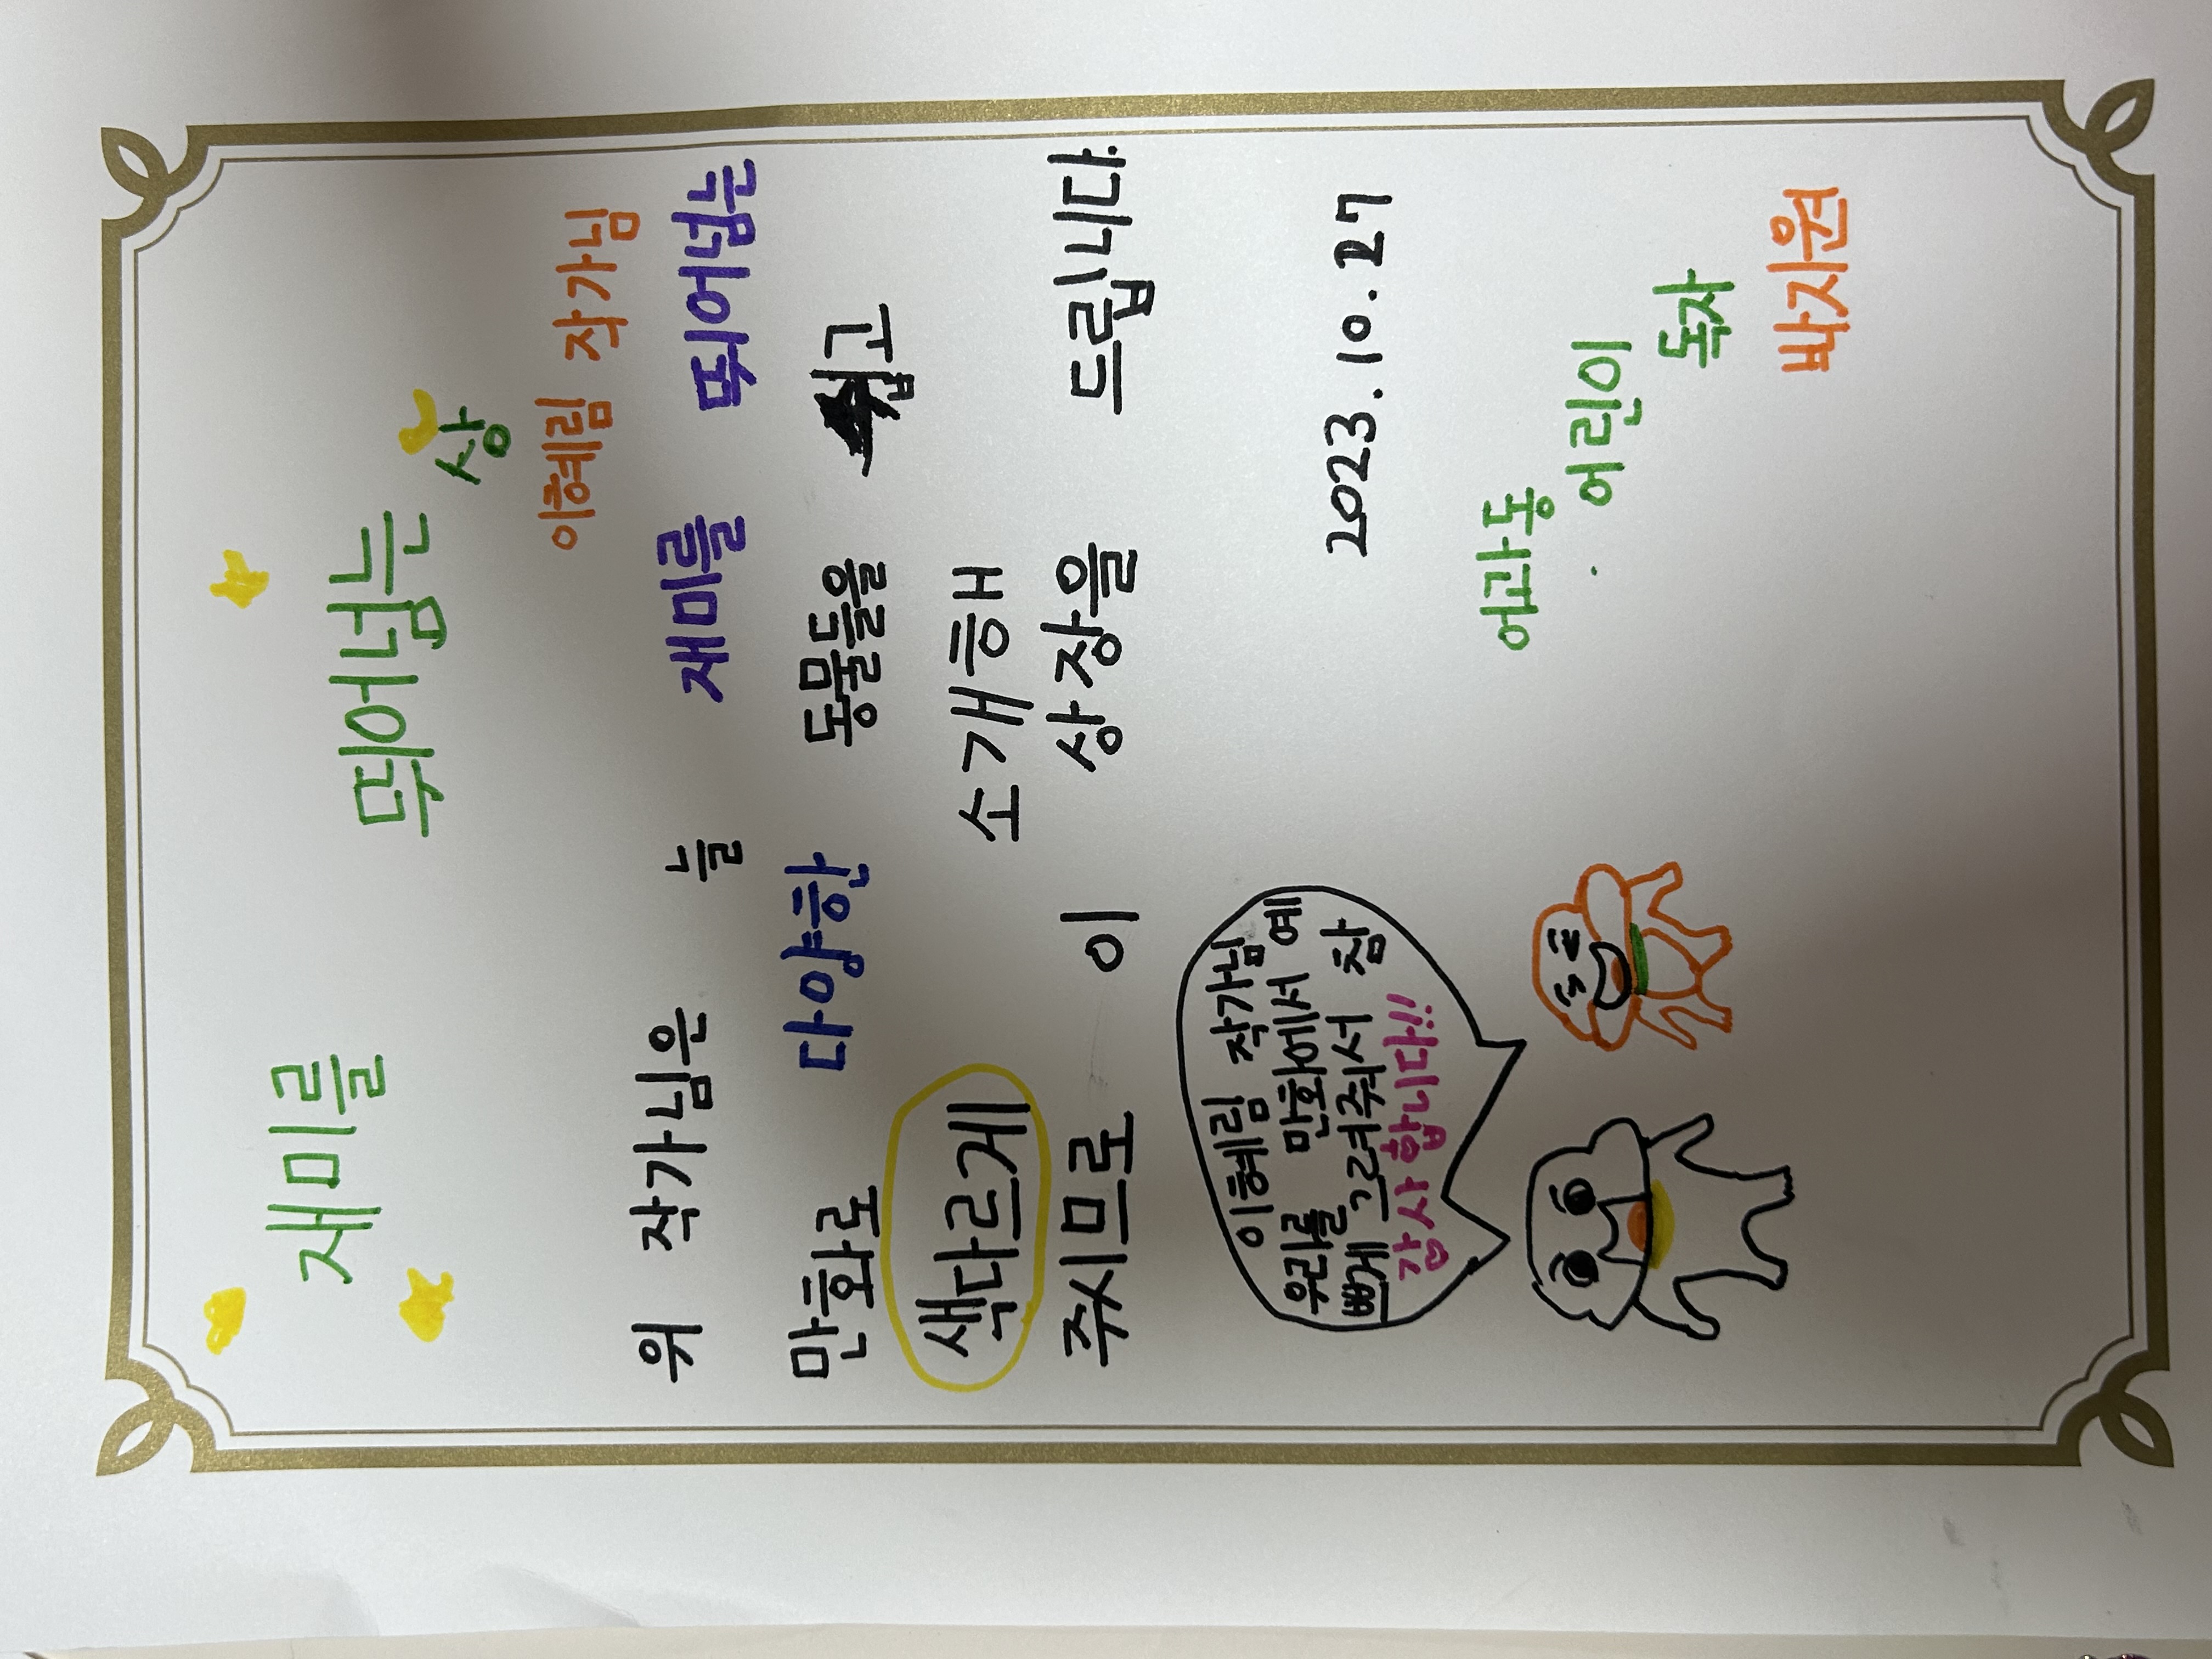 재미를 뛰어넘는 상
이혜림 작가님
위 작가님은 늘 재미를 뛰어넘는
만화로 다양한 동물들을 쉽고
색다르게 소개해
주시므로 이 상장을 드립니다.
2023. 10. 27
이혜림 작가님
우리를 만화에서 예
쁘게 그려줘서 참
감사합니다!!
어과동
어린이
독자
박지원